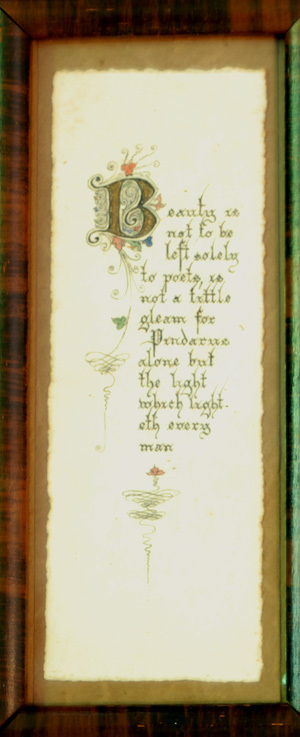 Beauty is
not to be
left solely
to poets, is
not a little
gleam for
Pindarus
alone but
the light
which light-
eth every
man